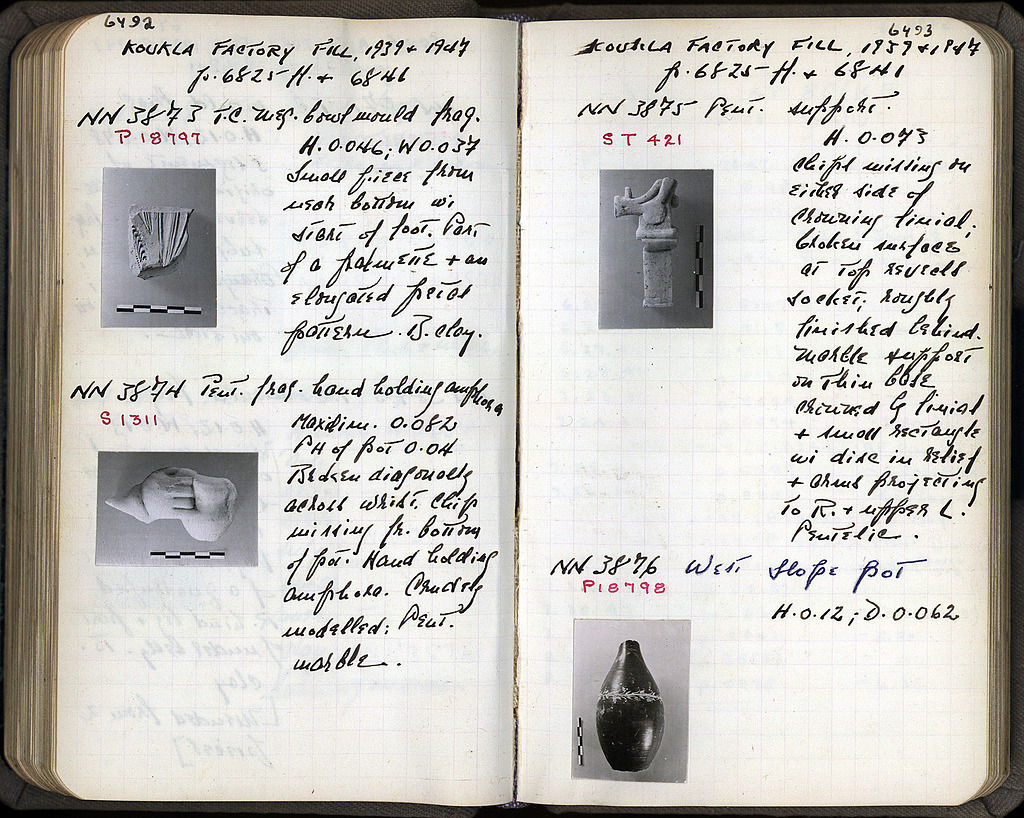 6492
KOUKLA FACTORY FILL, 1939 + 1947
p. 6825 ff. + 6841
NN 3873 T.C. Meg. bowl mould frag.
P 18797
H. 0.046; W 0.037
Small piece from
near bottom wi
start of foot. Part
of a palmette + an
elongated petal
pattern. B. clay.
NN 3874 Pent. frag. hand holding amphora
S 1311
Max. dim. 0.082
PH of pot 0.04
Broken diagonally
across wrist. Chip
missing fr. bottom
of pot. Hand holding
amphora. Crudely
modelled; Pent.
marble.
6493
KOUKLA FACTORY FILL, 1939 + 1947
p. 6825 ff. + 6841
NN 3875 Pent. support.
ST 421
H. 0.073
Chips missing on
either side of
crowning finial;
broken surface
at top reveals
socket; roughly
finished behind.
Marble support
on thin base
crowned by finial
+ small rectangle
wi disc in relief
+ arms projecting
to R. + upper L.
Pentelic.
NN 3876 West Slope pot
P18798
H. 0.12; D. 0.062